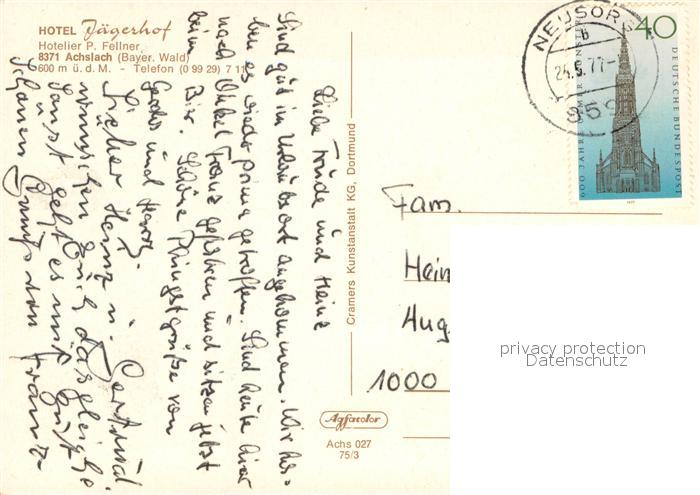 HOTEL Jägerhof
Hotelier P. Fellner
8371 Achslach (Bayer. Wald)
600 m ü. d. M. - Telefon (0 99 29) 7 11
Liebe Trude und Heinz
Sind gut im Urlaubsort angekommen. Wir ha-
ben es wieder prima getroffen. Sind heute hier
nach Onkel Franz gefahren und sitzen jetzt
beim Bier. Schöne Pfingstgrüße von
Gerda und Harry.
Lieber Heinz u. Gertrud
wünschen Euch dasgleiche
sonst geht es uns gut
Schönen Gruß von Franz
Cramers Kunstanstalt KG, Dortmund
Agfacolor
Achs 027
75/3
NEUSORG
b
24.5.77-
859
40
600 JAHRE ULMER MÜNSTER
DEUTSCHE BUNDESPOST
1977
Fam.
Hein
Aug
1000
privacy protection
Datenschutz